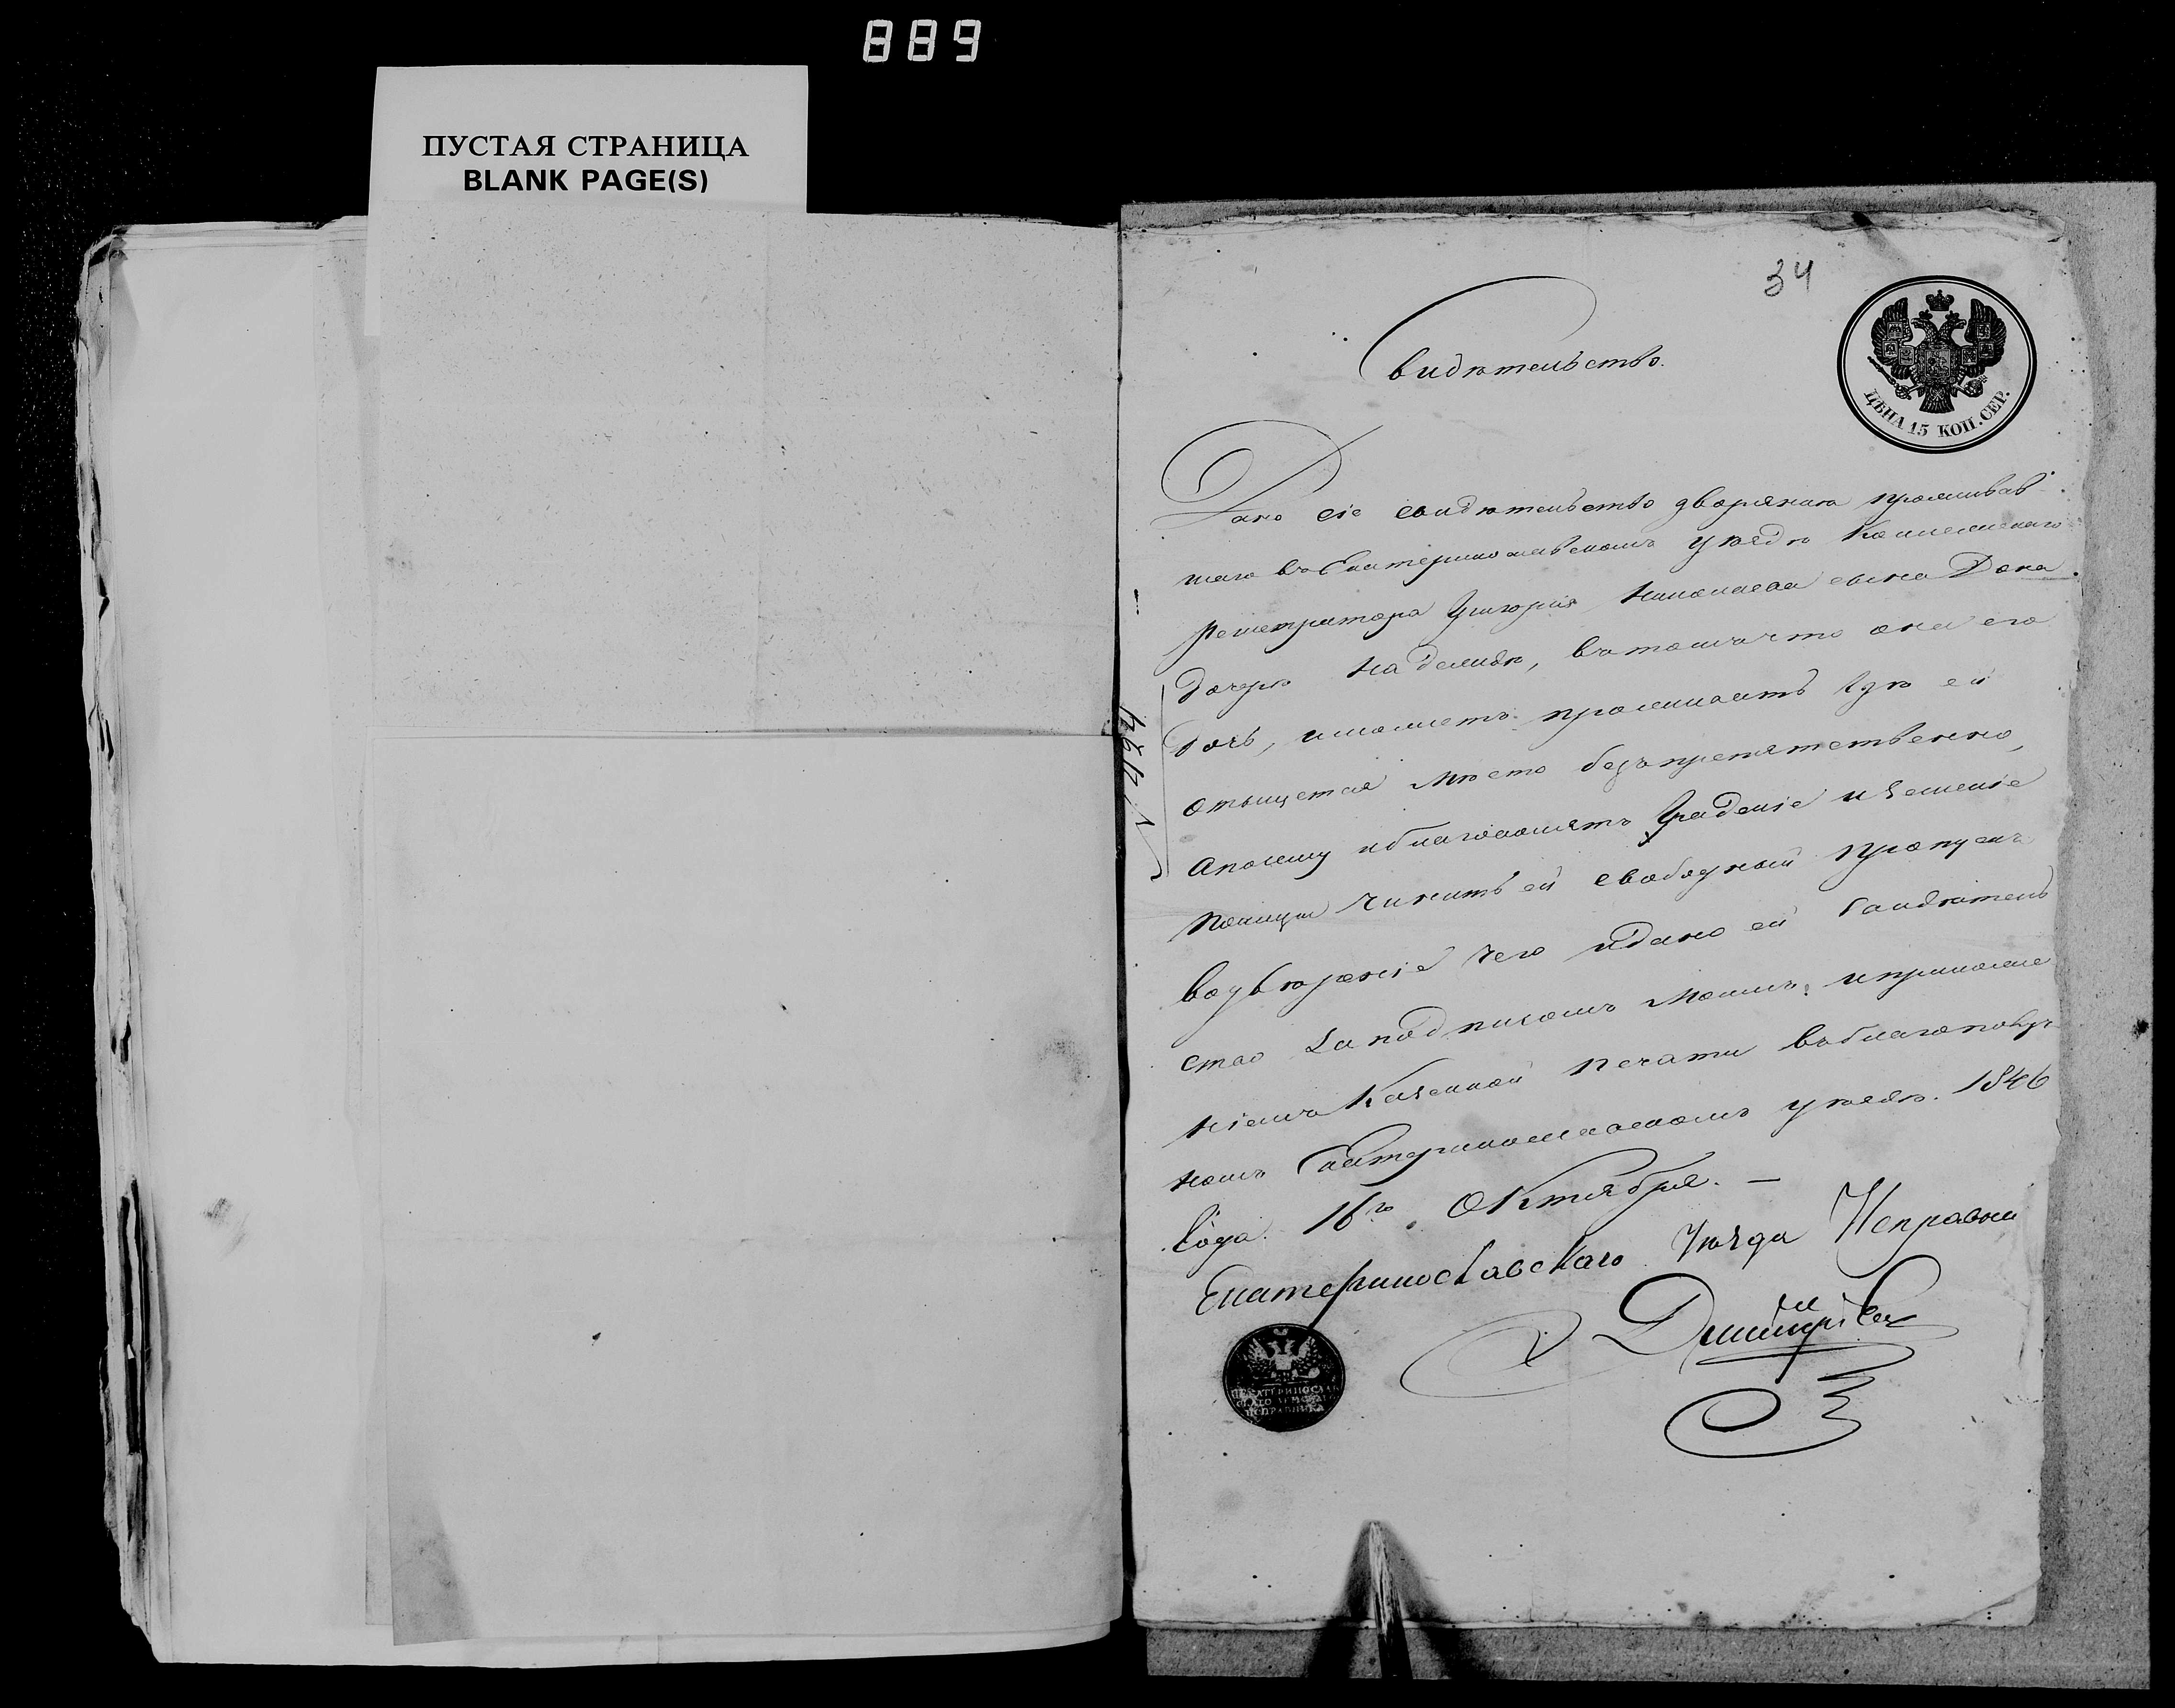 889
ПУСТАЯ СТРАНИЦА
BLANK PAGE(S)
34
ЦѢНА 15 КОП. СЕР.
Свидѣтельство.
Дано сіе свидѣтельство дворянина проживав-
шаго въ Екатеринославскомъ уѣздѣ Коллежскаго
регистратора Григорія Николаева сына Дона
дочери Надеждѣ, въ томъ что она его
дочь, и можетъ проживать гдѣ ей
отыщется мѣсто безпрепятственно,
а посему и благоволятъ Градскіе и Земскіе
полиціи чинить ей свободный пропускъ
во увѣреніе чего и дано ей свидѣтель
ство за подписомъ моимъ и приложе
ніемъ Казенной печати въ благополуч
номъ Екатеринославскомъ уѣздѣ. 1846
года. 16го Октября. —
Екатеринославскаго Уѣзда Исправни
Дмитріев
№ 4194
ЕКАТЕРИНОСЛАВ
СКАГО ЗЕМСКАГО
ИСПРАВНИКА